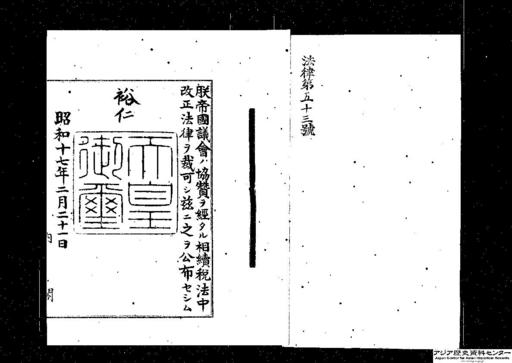 法律第五十三號
朕帝國議會ノ協贊ヲ經タル相續稅法中
改正法律ヲ裁可シ玆ニ之ヲ公布セシム
裕仁
天皇
御璽
昭和十七年二月二十一日
内 閣
アジア歴史資料センター
Japan Center for Asian Historical Records